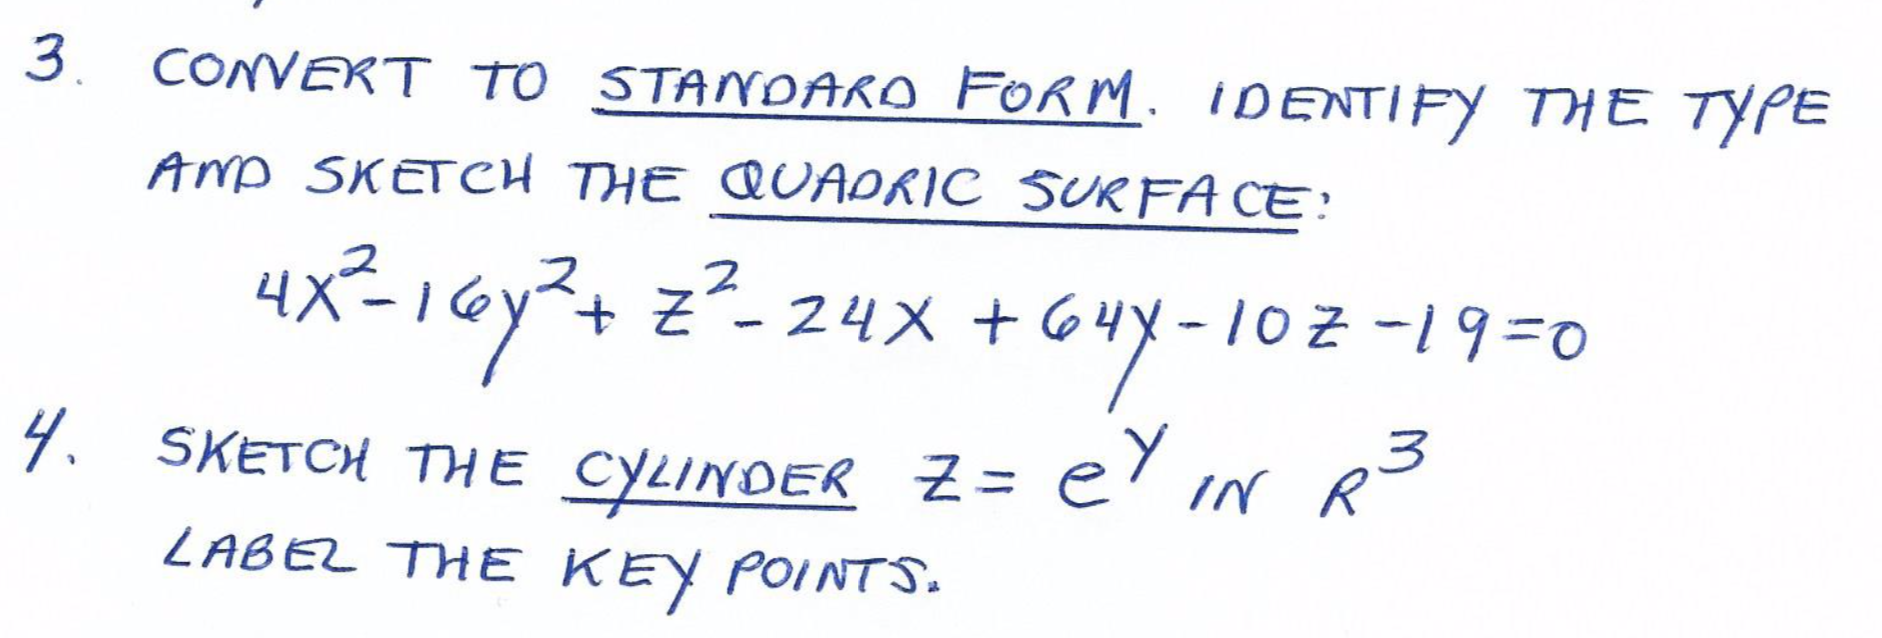 3. CONVERT TO STANDARD FORM. IDENTIFY THE TYPE
AND SKETCH THE QUADRIC SURFACE:
4x²-16y²+z²-24x+64y-10z-19=0
4. SKETCH THE CYLINDER z=e^y IN R³
LABEL THE KEY POINTS.